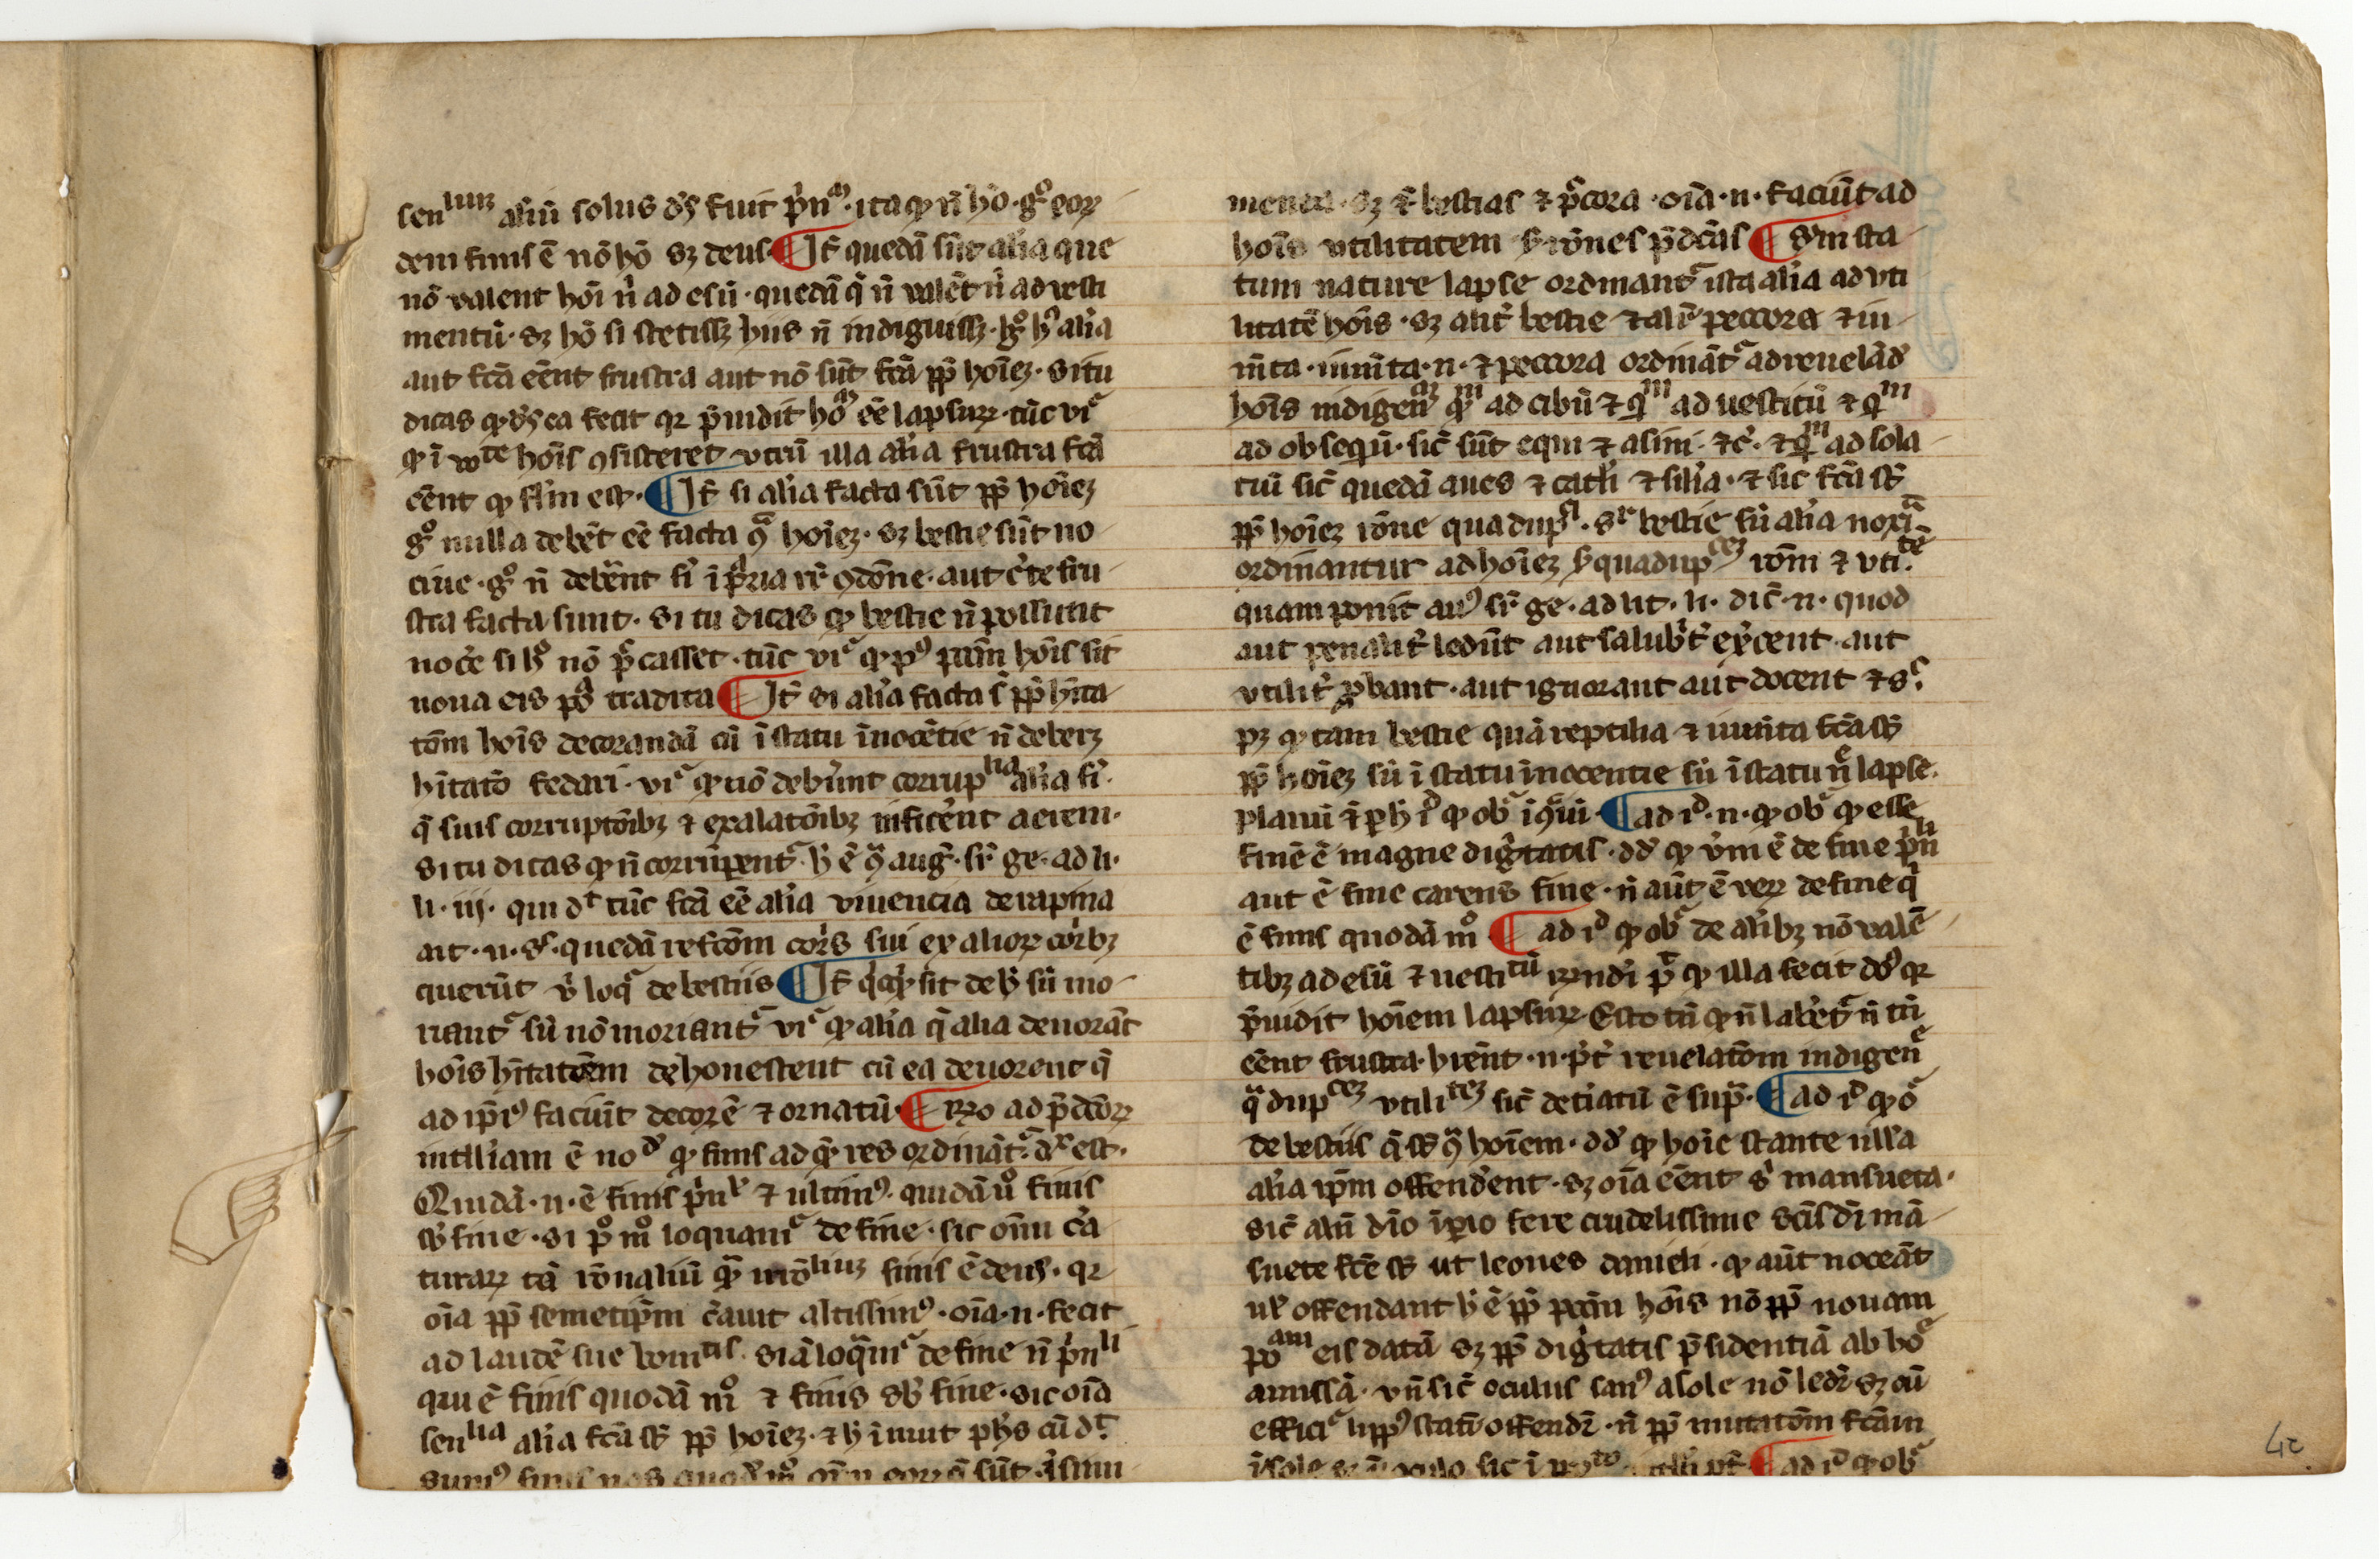 senliuz al̄iū solus ds̄ fuit p̍nm · ita ꝙ n̄ hō · g̊ eoꝝ
dem finis ē nō hō sꝫ deus ¶ It̄ quedā sūt al̄ia que
nō valent hōi n̄ ad esū · quedā q̍ n̄ valēt n̄ ad vesti
mentū · sꝫ hō si stetissꝫ hiis n̄ indiguissꝫ · g̊ h̄ al̄ia
aut fc̄a eēnt frustra aut nō sūt fc̄a ꝓp̄ hōieꝫ · si tu
dicas ꝙ ds̄ ea fecit qꝛ p̄uidit hōm eē lapsuꝝ · tūc vr̄
ꝙ ī hōis ꝯsisteret utrū illa al̄ia frustra fc̄a
eēnt ꝙ fl̄m est · ¶ It̄ si al̄ia facta sūt ꝓp̄ hōieꝫ
g̊ nulla debēt eē facta ꝯͣ hōieꝫ · sꝫ bestie sūt no
ciue · g̊ n̄ debēnt fi̍ ī p̍ria rēꝝ ꝯdōne · aut c̄te fru
stra facta sunt · si tu dicas ꝙ bestie n̄ possunt
nocē̍ si hō nō pc̄casset · tūc vr̄ ꝙ pꝰ pcc̄m hōis sit
noua eis po̍ tradita ¶ It̄ si al̄ia facta s̄ ꝓp̄ hīta
tōm hōis decorandā cū ī statu īnocētie n̄ deberꝫ
hītatō fedari · vr̄ ꝙ nō debūnt corrupliā al̄ia fi̍ ·
q̄ suis corruptōibꝫ ⁊ exalatōibꝫ inficēnt aerem ·
si tu dicas ꝙ n̄ corrūpent̄ · h̄ ē ꝯͣ auḡ · sr̄ ge · ad li ·
li · iij · qui dt tūc fc̄a eē al̄ia viuencia de rapina
ait · n · s̄ · quedā refctōm cōr̄s sui ex alioꝝ cor̄bꝫ
querūt v̍ loqr̄ de bestiis ¶ It̄ q̍cq̍d sit de h̄ siū mo
riant̄ siū nō moriant̄ vr̄ ꝙ al̄ia q̄ alia deuorāt
hōis hītatōem dehonestent cū ea deuorent q̄
ad ip̄iꝰ faciūt decorē ⁊ ornatū · ¶ Rꝛo ad p̄dc̄oꝝ
intll̄iam ē nod ꝙ finis ad qm̄ res ordināt̄ · dr̄ est ·
Quidā · n · ē finis p̍nlꝭ ⁊ ultimꝰ · quidā ů finis
sb̄ fine · si pͦ mͦ loquam̄ de fine · sic oīū c̄a
turaꝝ tā rōnaliū qm̄ irrōliuꝫ finis ē deus · qꝛ
oīa ꝓp̄ semetip̄m c̄auit altissimꝰ · oīa · n · fecit
ad laudē sue bonitis · si aū loqm̄ur de fine n̄ p̍nli
qui ē finis quodā mͦ ⁊ finis sb̄ fine · sic oīa
senlia al̄ia fc̄a st̄ ꝓp̄ hōieꝫ · ⁊ h̄ īnuit ph̄s cū dt ·
sumꝰ finis nos quodā mͦ oīu eoꝝ q̄ sūt
sꝫ ⁊ bestias ⁊ pc̄ora · oīa · n · faciūt ad
hōis utilitatem h̄ rōnes p̄dc̄as ¶ Sꝫ in sta
tum nature lapse ordinant̄ ista al̄ia ad uti
litatē hōis · sꝫ alit̄ bestie ⁊ alit̄ peccora ⁊ iu
m̄ta · iumēta · n · ⁊ peccora ordināt̄ ad reuelād̄
hōis indigenāꝫ qm ad cibū ⁊ qm ad uestitū ⁊ qm
ad obseqū · sic̄ sūt equi ⁊ asini · ⁊c̄ · ⁊ qm ad sola
tiū sic̄ quedā aues ⁊ catl̄i ⁊ sil̄ia · ⁊ sic fc̄a st̄
ꝓp̄ hōieꝫ rōne quadupli · sꝫ bestie siū al̄ia noxia
ordinantur ad hōieꝫ h̄ quadupceꝫ rōm ⁊ uti · te
quam ponit auꝰ sr̄ ge · ad lit · li · dic̄ · n · quod
aut penalit̄ ledūt aut salubrit̄ exc̄ent · aut
utilit̄ ꝓbant · aut ignorant aut docent ⁊ s̄ ·
pꝫ ꝙ tam bestie quā reptilia ⁊ iumēta fc̄a st̄
ꝓp̄ hōieꝫ siū ī statu īnocentie siū ī statu ne lapse ·
planū ē ꝑ h̄ rd ꝙ obr̄ īq̍situi ¶ ad rd · n · ꝙ obr̄ ꝙ esse
finē ē magne dignitatis · dd̄ ꝙ v̄m ē de fine p̍nli
aut ē fine carens fine · n̄ aūt ē veꝝ de fine q̍
ē finis quodā mͦ ¶ ad rd ꝙ obr̄ de al̄ibꝫ nō valē
tibꝫ ad esū ⁊ uestitū rn̄di pt ꝙ illa fecit ds̄ qꝛ
p̄uidit hōiem lapsuꝝ Esto tn̄ ꝙ n̄ laberet̄ n̄ tn̄
eēnt frustra · hrēnt · n · p̍t̄ reuelatōm indigene
qͣdupceꝫ utiliteꝫ sic̄ det̄iatū ē supͣ · ¶ ad rd ꝙ o
de bestiis q̄ st̄ ꝯͣ hōiem · dd̄ ꝙ hōie stante null̄a
al̄ia ip̄m offend̄ent · sꝫ oīa eēnt s̄ mansueta ·
sic̄ aliū dīo īꝑio fere crudelissime sc̄is dī mā
suete fc̄e st̄ ut leones danieli · ꝙ aūt noceāt
ul̄ offendant h̄ ē ꝓp̄ pccm̄ hōis nō ꝓp̄ nouam
poam eis datā sꝫ ꝓp̄ dignitatis p̄sidentiā ab hōe
amissā · un̄ sic̄ oculus sanꝰ a sole nō ledr̄ sꝫ cū
efficir̄ lippꝰ statī offendr̄ · n̄ ꝓp̄ mutatōm fc̄am
ī sole sꝫ ī oculo sic ī ¶ ad rd ꝙ obr̄